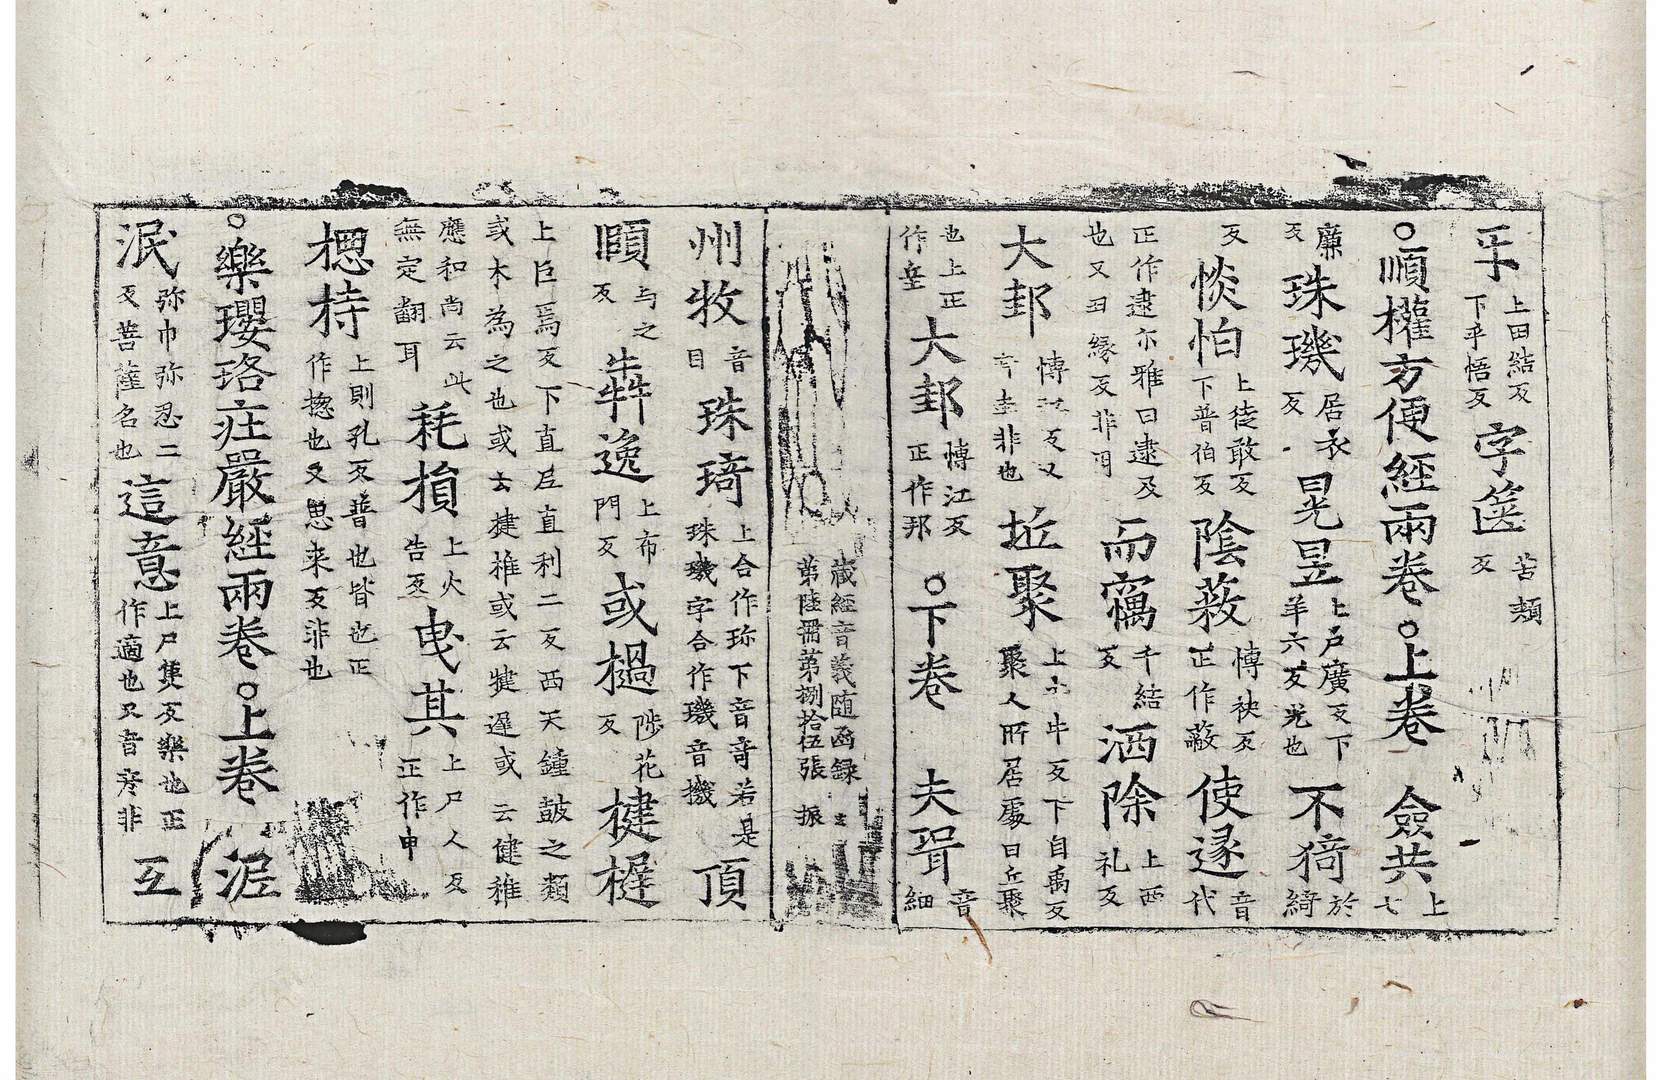 乎上田結反下乎悟反字篋苦頰反
○順權方便經兩卷○上卷 僉共上七
廉反珠璣居衣反晃昱上户廣反下羊六反光也不猗於綺
反惔怕上徒敢反下普伯反陰蔽博袂反正作蔽使逯音代
正作逮尔雅曰逮及也又田緣反非用而竊千結反洒除上西礼反
大邦博江反又音圭非也坵聚上去牛反下自禹反聚人所居處曰丘聚
也上正作丠大邦博江反正作邦○下卷 夫聟音細
藏經音義随函録
第陸冊第捌拾伍張 振
州牧音目珠琦上合作珎下音奇若是珠璣字合作璣音機頂
頤与之反犇逸上布門反或撾陟花反楗椎
上巨焉反下直尼直利二反西天鍾鼓之類或木為之也或去揵椎或云犍遲或云健稚
應和尚云此無定翻耳耗損上火告反曳其上尸人反正作申
楤持上則孔反普也皆也正作揔也又思来反非也
○樂瓔珞莊嚴經兩卷○上卷 泯
泯弥巾弥忍二反菩薩名也這意上尸隻反樂也正作適也又音彦非 互